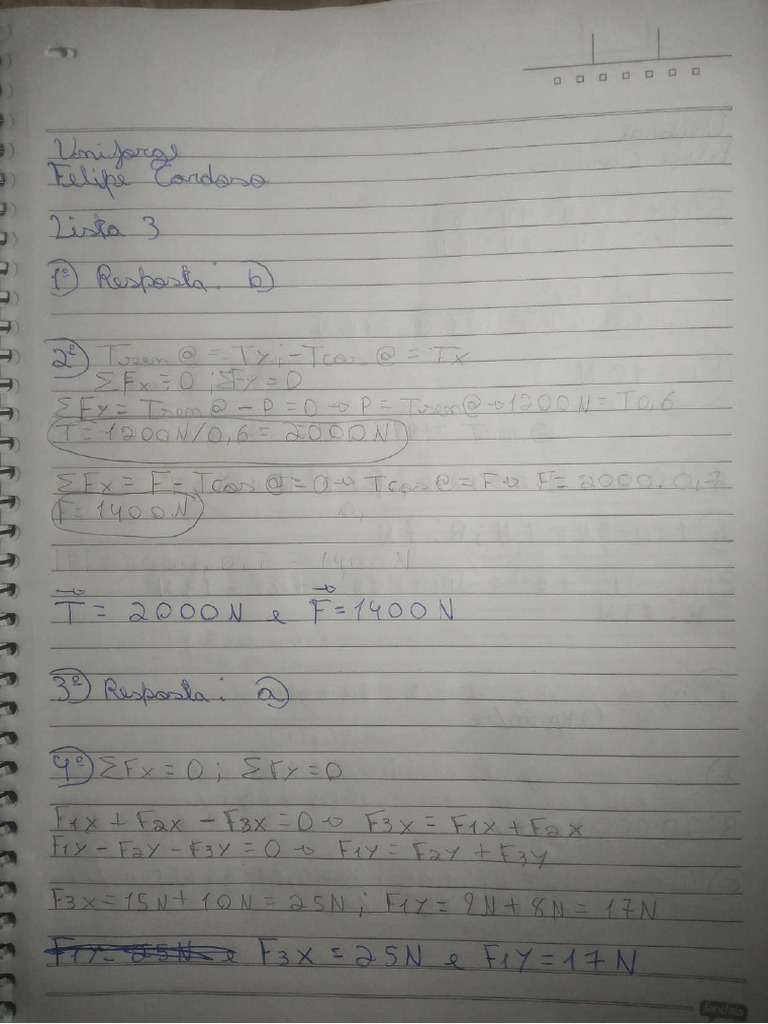 Unijorge
Felipe Cardoso
Lista 3
1º) Resposta: b)
2º) Tsen @ = Ty; -Tcos @ = Tx
ΣFx = 0 ; ΣFy = 0
ΣFy = Tsen @ - P = 0 → P = Tsen @ → 1200N = T0,6
T = 1200N/0,6 = 2000N
ΣFx = F - Tcos @ = 0 → Tcos @ = F → F = 2000.0,7
F = 1400N
T = 2000N e F = 1400N
3º) Resposta: a)
4º) ΣFx = 0 ; ΣFy = 0
F1x + F2x - F3x = 0 → F3x = F1x + F2x
F1y - F2y - F3y = 0 → F1y = F2y + F3y
F3x = 15N + 10N = 25N ; F1y = 9N + 8N = 17N
F1y = 25N e F3x = 25N e F1y = 17N
jandaia